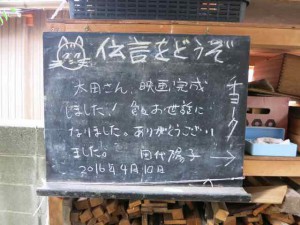 伝言をどうぞ
太田さん、映画完成
しました！ お世話に
なりました。ありがとうござい
ました。 田代陽子
2016年4月10日
チョーク→